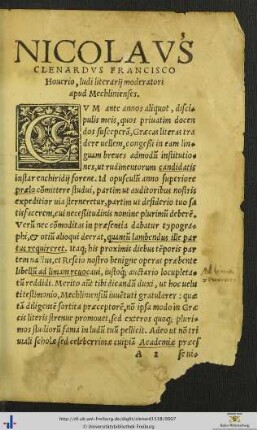 NICOLAVS
CLENARDVS FRANCISCO
Houerio, ludi literarij moderatori
apud Mechlinienses.
CVM ante annos aliquot, disci-
pulis meis, quos priuatim docen
dos susceperā, Græcas literas tra
dere vellem, congessi in eam lin
guam breues admodū institutio-
nes, ut rudimentorum candidatis
instar enchiridij forent. Id opusculū anno superiore
prælo cōmittere studui, partim ut auditoribus nostris
expeditior uia sterneretur, partim ut desiderio tuo sa
tisfacerem, cui necessitudinis nomine plurimū deberē.
Verū nec cōmoditas in præsentia dabatur typogra-
phi, & otiū alioqui deerat, quantū lambendus ille par
tus requireret. Itaq; his proximis diebus tēporis par-
tem nactus, et Rescio nostro benigne operas præbente
libellū ad limam reuocaui, iustoq; auctario locupleta-
tū reddidi. Merito aūt tibi dicandū duxi, ut hoc uelu
ti testimonio, Mechliniensiū iuuētuti gratularer: quæ
tū diligentē sortita præceptorē, nō ipsa modo in Græ
cis literis strenue promouet, sed exteros quoq; pluri-
mos studiorū fama in ludū tuū pellicit. Adeo ut nō tri
uiali scholæ sed celeberrimæ cuipiā Academiæ præef
A 2 se ui-
http://dl.ub.uni-freiburg.de/diglit/clenard1538/0007
© Universitätsbibliothek Freiburg